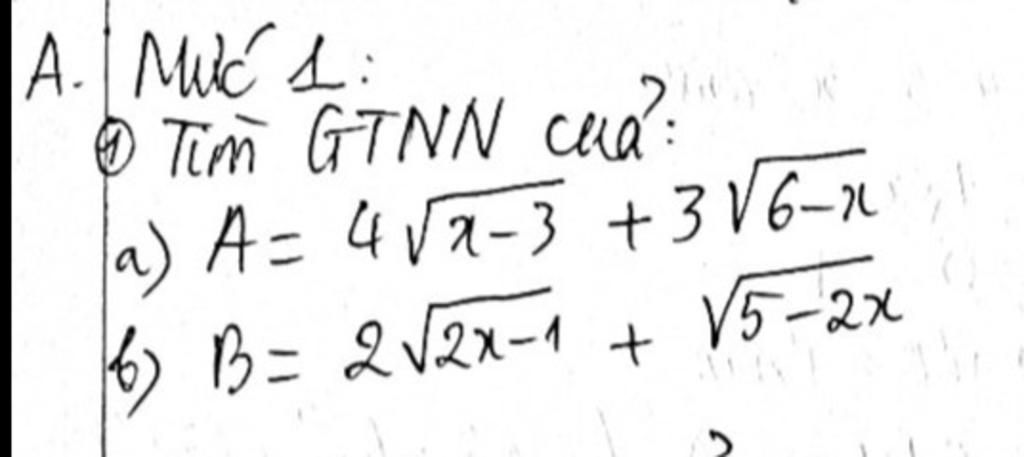 A. Mức 1:
① Tìm GTNN của:
a) A = 4√(x-3) + 3√(6-x)
b) B = 2√(2x-1) + √(5-2x)